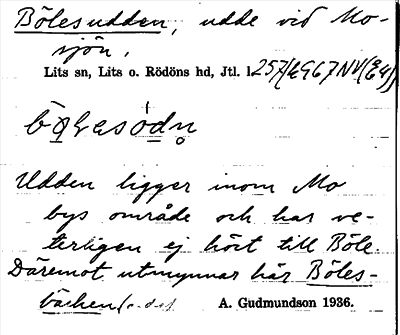 Bölesudden, udde vid Mo-
sjön,
Lits sn, Lits o. Rödöns hd, Jtl. l.
Udden ligger inom Mo
bys område och har ve-
terligen ej hört till Böle.
Däremot utmynnar här Böles-
bäcken
A. Gudmundson 1936.